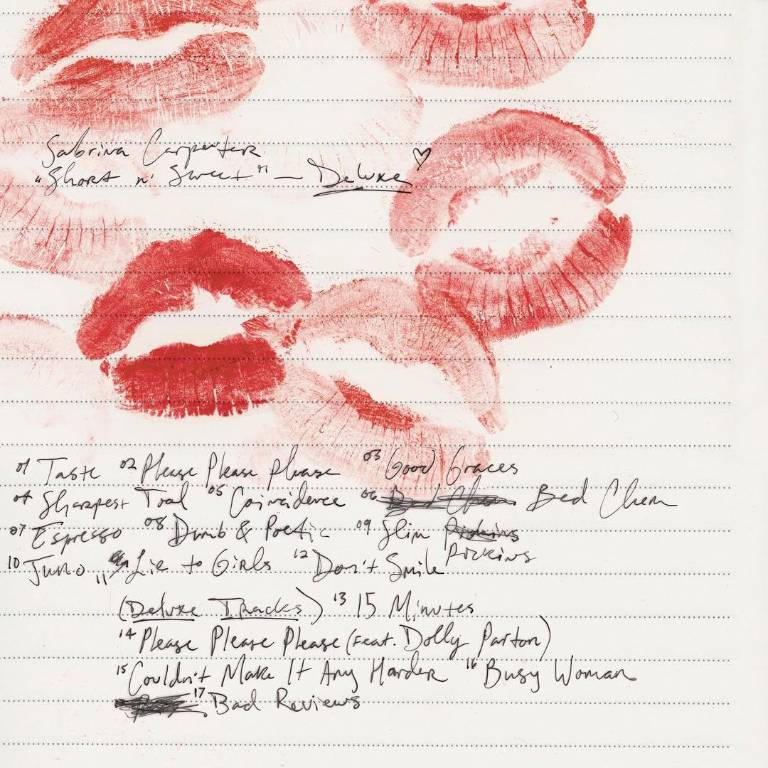 Sabrina Carpenter
"Short n' Sweet" — Deluxe ♡
01 Taste 02 Please Please Please 03 Good Graces
04 Sharpest Tool 05 Coincidence 06 Bed Chem Bed Chem
07 Espresso 08 Dumb & Poetic 09 Slim Pickins
10 Juno 11 Lie to Girls 12 Don't Smile Pickins
(Deluxe Tracks) 13 15 Minutes
14 Please Please Please (feat. Dolly Parton)
15 Couldn't Make It Any Harder 16 Busy Woman
17 Bad Reviews